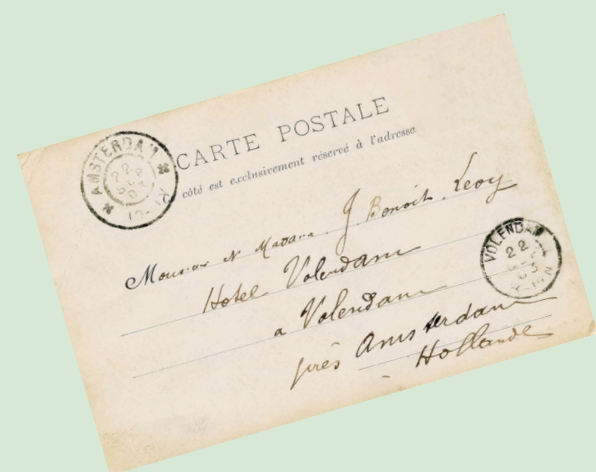 CARTE POSTALE
côté est exclusivement réservé à l'adresse
AMSTERDAM
22
12-
Monsieur et Madame J Benoit Levy
Hotel Volendam
a Volendam
près Amsterdam
Hollande
VOLENDAM
22